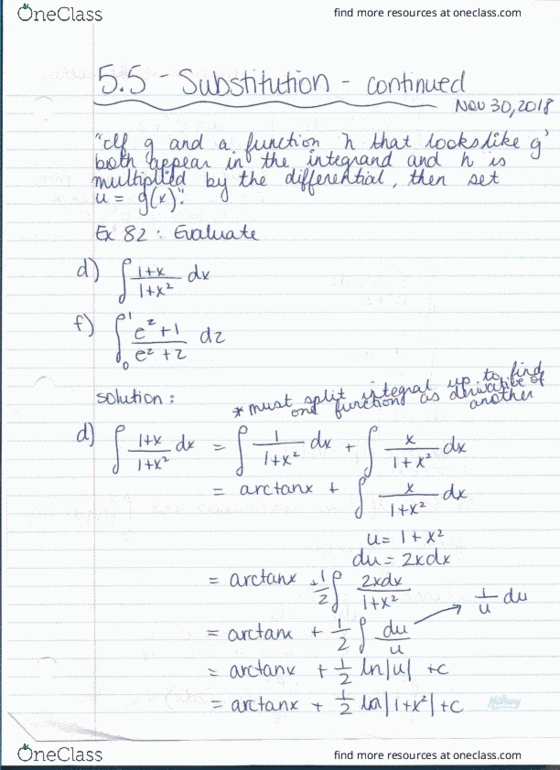 OneClass
find more resources at oneclass.com
5.5 - Substitution - continued
Nov 30, 2018
"If g and a function h that looks like g'
both appear in the integrand and h is
multiplied by the differential, then set
u = g(x)."
Ex 82 : Evaluate
d) ∫ (1+x)/(1+x²) dx
f) ∫₀¹ (e^z + 1)/(e^z + z) dz
solution :
* must split integral up to find
one function as derivative of
another
d) ∫ (1+x)/(1+x²) dx = ∫ 1/(1+x²) dx + ∫ x/(1+x²) dx
= arctanx + ∫ x/(1+x²) dx
u = 1 + x²
du = 2xdx
= arctanx + 1/2 ∫ 2xdx/(1+x²)
1/u du
= arctanx + 1/2 ∫ du/u
= arctanx + 1/2 ln|u| + c
= arctanx + 1/2 ln|1+x²| + c
OneClass
find more resources at oneclass.com